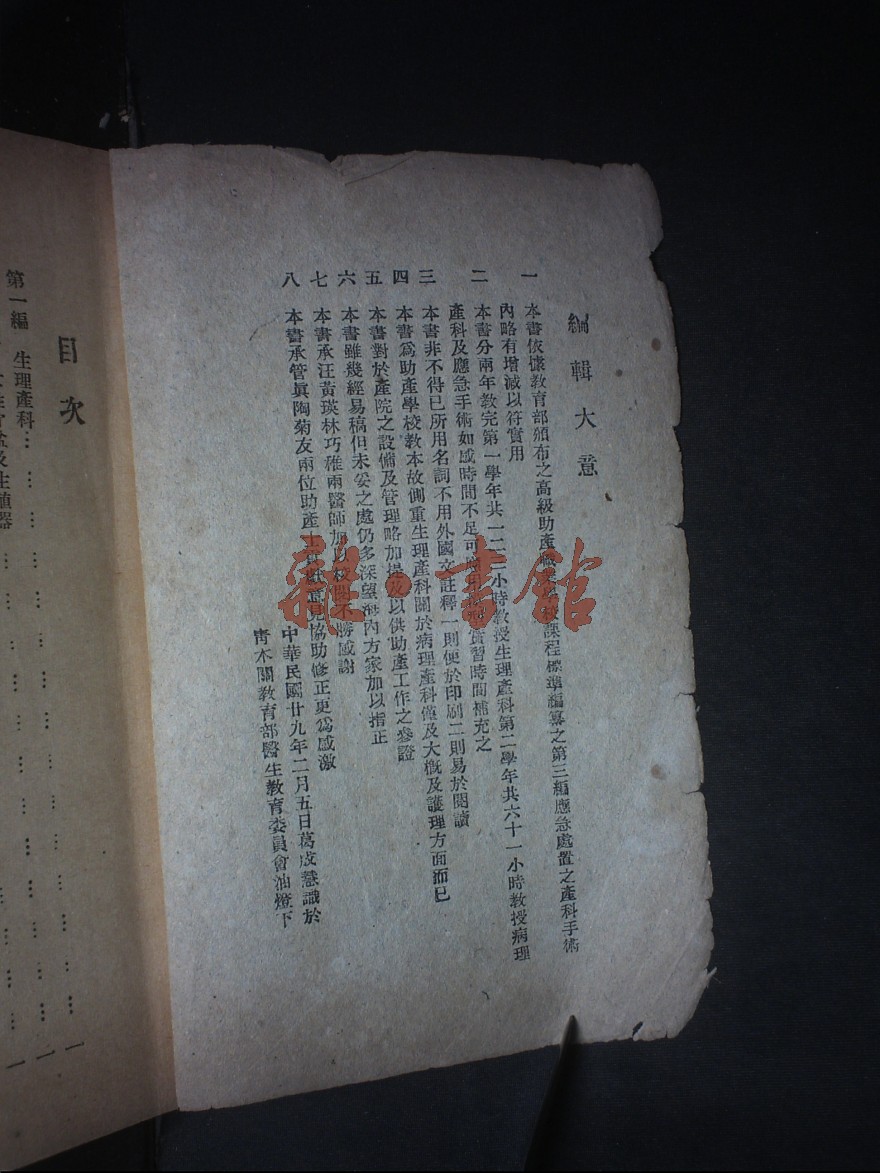 編輯大意
一 本書依據教育部頒布之高級助產職業學校課程標準編纂之第三編應急處置之產科手術
內略有增減以符實用
二 本書分兩年教完第一學年共一二二小時教授生理產科第二學年共六十一小時教授病理
產科及應急手術如感時間不足可 實習時間補充之
三 本書非不得已所用名詞不用外國文註釋一則便於印刷二則易於閱讀
四 本書為助產學校教本故側重生理產科關於病理產科僅及大概及護理方面而已
五 本書對於產院之設備及管理略加提及以供助產工作之參證
六 本書雖幾經易稿但未妥之處仍多深望海內方家加以指正
七 本書承汪黃瑛林巧稚兩醫師加以校閱不勝感謝
八 本書承管眞陶菊友兩位助產士貢獻意見協助修正更為感激
中華民國廿九年二月五日葛成慧識於
靑木關教育部醫生教育委員會油燈下
目次
第一編 生理產科… … … … … … … … … … 一
… … … … … … … 一
雜·書館